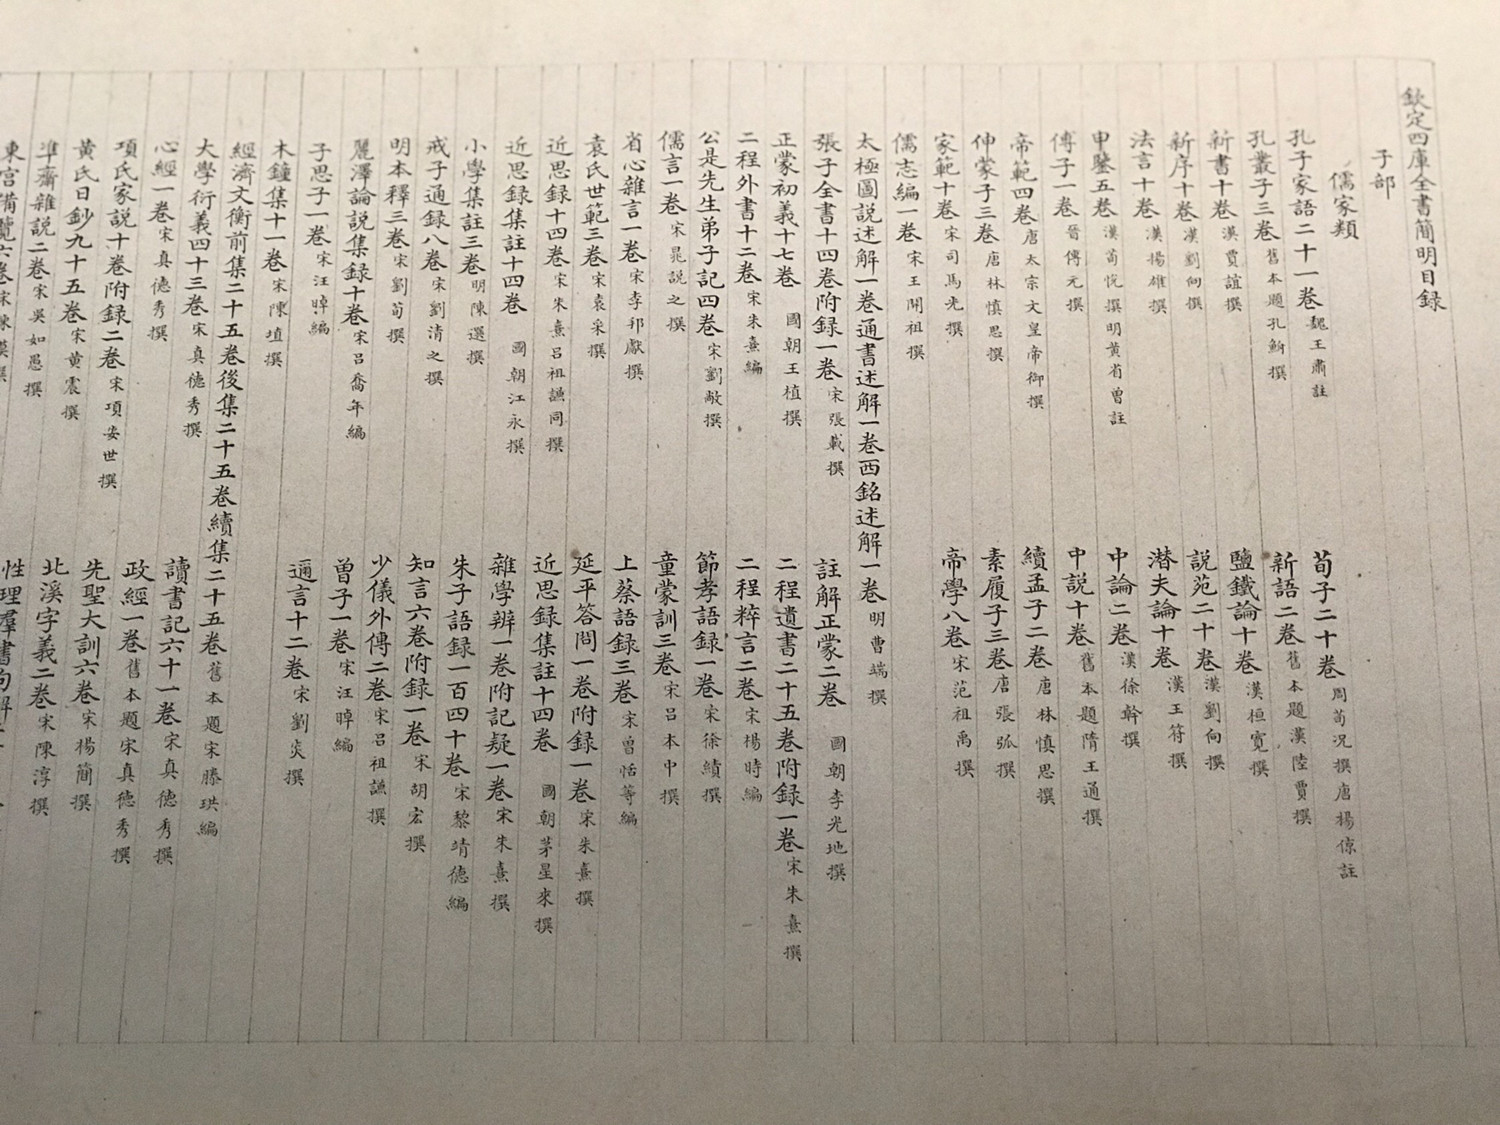 欽定四庫全書簡明目録
子部
儒家類
孔子家語二十一卷 魏王肅註 荀子二十卷 周荀况撰唐楊倞註
孔叢子三卷 舊本題孔鮒撰 新語二卷 舊本題漢陸賈撰
新書十卷 漢賈誼撰 鹽鐵論十卷 漢桓寛撰
新序十卷 漢劉向撰 説苑二十卷 漢劉向撰
法言十卷 漢揚雄撰 潜夫論十卷 漢王符撰
申鑒五卷 漢荀恱撰明黄省曽註 中論二卷 漢徐幹撰
傅子一卷 晉傅元撰 中説十卷 舊本題隋王通撰
帝範四卷 唐太宗文皇帝御撰 續孟子二卷 唐林慎思撰
伸蒙子三卷 唐林慎思撰 素履子三卷 唐張弧撰
家範十卷 宋司馬光撰 帝學八卷 宋范祖禹撰
儒志編一卷 宋王開祖撰
太極圖説述解一卷通書述解一卷西銘述解一卷 明曹端撰
張子全書十四卷附録一卷 宋張載撰 註解正蒙二卷 國朝李光地撰
正蒙初義十七卷 國朝王植撰 二程遺書二十五卷附録一卷 宋朱熹撰
二程外書十二卷 宋朱熹編 二程粹言二卷 宋楊時編
公是先生弟子記四卷 宋劉敞撰 節孝語録一卷 宋徐績撰
儒言一卷 宋晁説之撰 童蒙訓三卷 宋吕本中撰
省心雜言一卷 宋李邦獻撰 上蔡語録三卷 宋曽恬等編
袁氏世範三卷 宋袁采撰 延平答問一卷附録一卷 宋朱熹撰
近思録十四卷 宋朱熹吕祖謙同撰 近思録集註十四卷 國朝茅星來撰
近思録集註十四卷 國朝江永撰 雜學辨一卷附記疑一卷 宋朱熹撰
小學集註三卷 明陳選撰 朱子語録一百四十卷 宋黎靖德編
戒子通録八卷 宋劉清之撰 知言六卷附録一卷 宋胡宏撰
明本釋三卷 宋劉荀撰 少儀外傳二卷 宋吕祖謙撰
麗澤論説集録十卷 宋吕喬年編 曽子一卷 宋汪晫編
子思子一卷 宋汪晫編 邇言十二卷 宋劉炎撰
木鐘集十一卷 宋陳埴撰
經濟文衡前集二十五卷後集二十五卷續集二十五卷 舊本題宋滕珙編
大學衍義四十三卷 宋真德秀撰 讀書記六十一卷 宋真德秀撰
心經一卷 宋真德秀撰 政經一卷 舊本題宋真德秀撰
項氏家説十卷附録二卷 宋項安世撰 先聖大訓六卷 宋楊簡撰
黄氏日鈔九十五卷 宋黄震撰 北溪字義二卷 宋陳淳撰
凖齋雜説二卷 宋吳如愚撰 性理羣書句解
東宫備覽六卷 宋陳